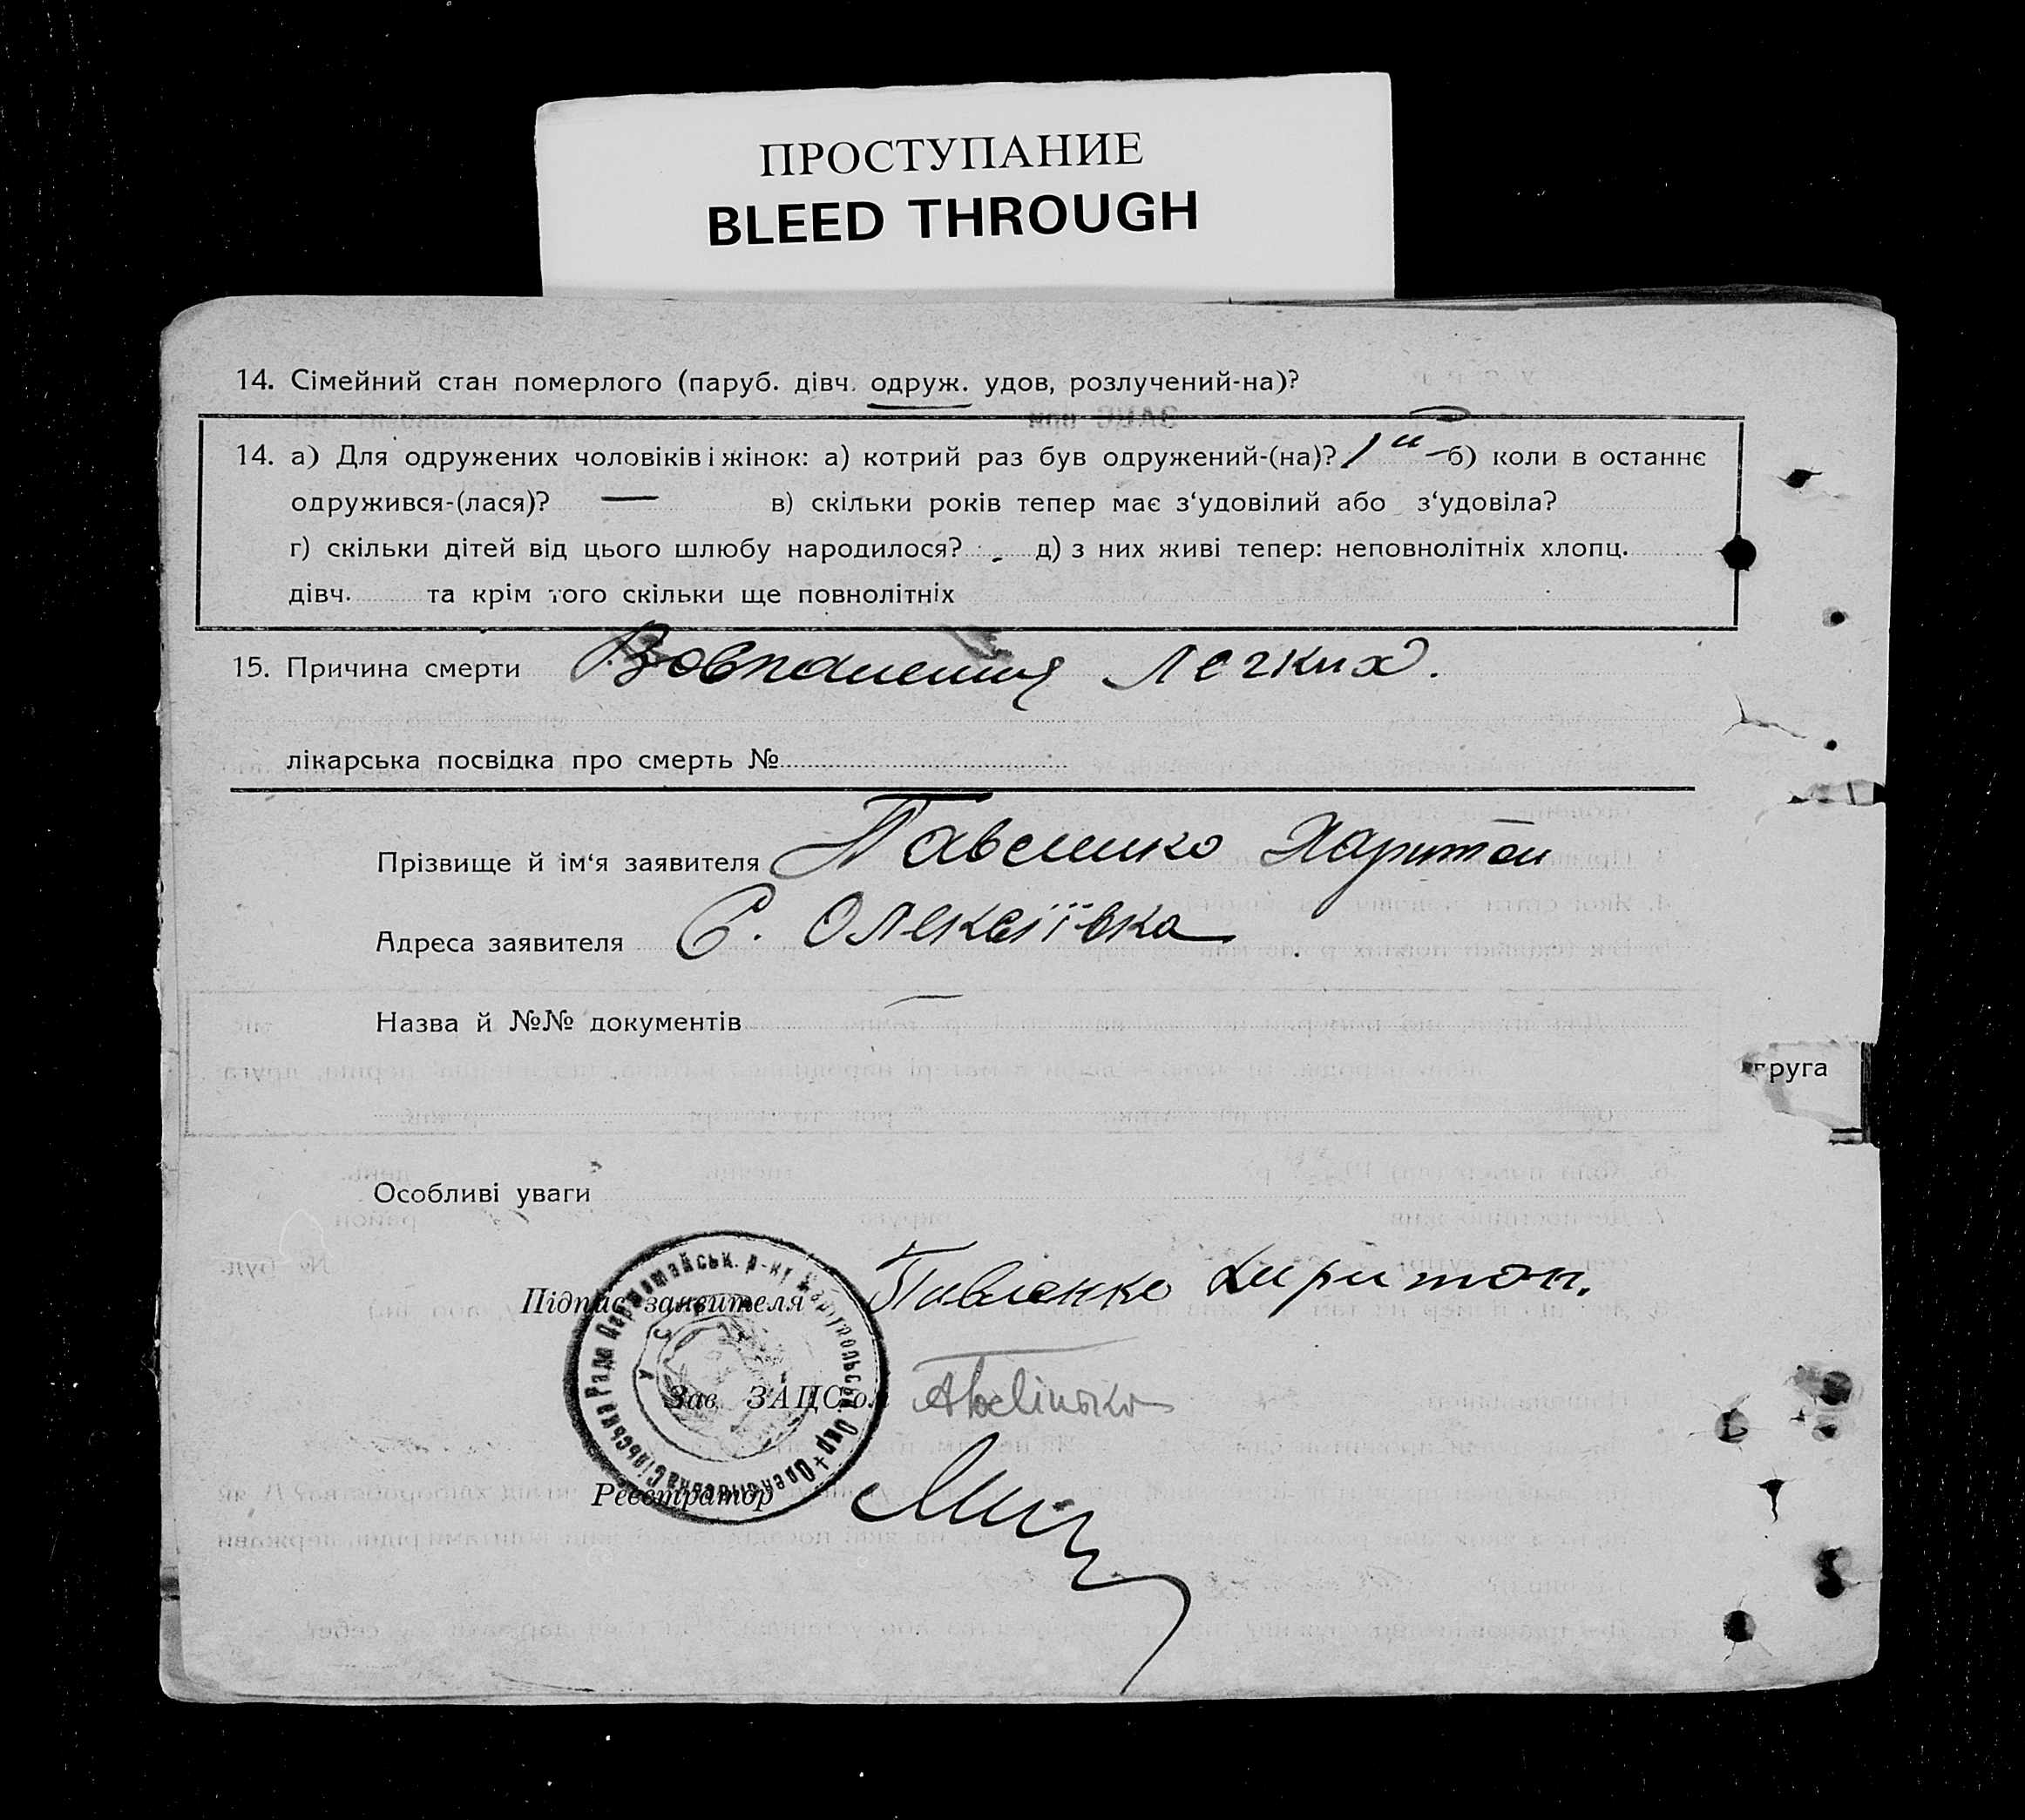 ПРОСТУПАНИЕ
BLEED THROUGH
14. Сімейний стан померлого (паруб. дівч. одруж. удов, розлучений-на)?
14. а) Для одружених чоловіків і жінок: а) котрий раз був одружений-(на)? 1й б) коли в останнє
одружився-(лася)? — в) скільки років тепер має з‘удовілий або з‘удовіла?
г) скільки дітей від цього шлюбу народилося? д) з них живі тепер: неповнолітніх хлопц.
дівч. та крім того скільки ще повнолітніх
15. Причина смерти Воспаления Легких.
лікарська посвідка про смерть №
Прізвище й ім‘я заявителя Павленко Харитон
Адреса заявителя С. Олексіївка
Назва й №№ документів —
круга
Особливі уваги
Підпис заявителя Павленко Харитон.
Зав. ЗАЦС‘ом
Реєстратор
Олексіївська Сільська Рада Першомайськ. р-ну Маріупольськ. Окр.
У С